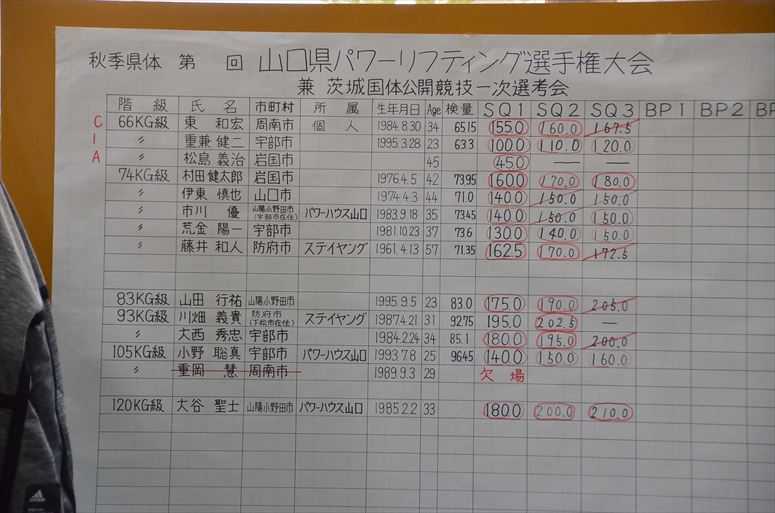 秋季県体 第 回 山口県パワーリフティング選手権大会
兼 茨城国体公開競技一次選考会
階級 氏名 市町村 所属 生年月日 Age 検量 SQ1 SQ2 SQ3 BP1 BP2 B
C 66KG級 東 和宏 周南市 個人 1984.8.30 34 65.15 155.0 160.0 167.5
I 〃 重兼 健二 宇部市 1995.3.28 23 63.3 100.0 110.0 120.0
A 〃 松島 義治 岩国市 45 45.0 — —
74KG級 村田 健太郎 岩国市 1976.4.5 42 73.95 160.0 170.0 180.0
〃 伊東 慎也 山口市 1974.4.3 44 71.0 140.0 150.0 150.0
〃 市川 優 山陽小野田市(宇部市在住) パワーハウス山口 1983.9.18 35 73.45 140.0 150.0 150.0
〃 荒金 陽一 宇部市 1981.10.23 37 73.6 130.0 140.0 150.0
〃 藤井 和人 防府市 ステイヤング 1961.4.13 57 71.35 162.5 170.0 172.5
83KG級 山田 行祐 山陽小野田市 1995.9.5 23 83.0 175.0 190.0 205.0
93KG級 川畑 義貴 防府市(下松市在住) ステイヤング 1987.4.21 31 92.75 195.0 202.5 —
〃 大西 秀忠 宇部市 1984.2.24 34 85.1 180.0 195.0 200.0
105KG級 小野 聡真 宇部市 パワーハウス山口 1993.7.8 25 96.45 140.0 150.0 160.0
〃 重岡 慧 周南市 1989.9.3 29 欠場
120KG級 大谷 聖士 山陽小野田市 パワーハウス山口 1985.2.2 33 180.0 200.0 210.0
adidas